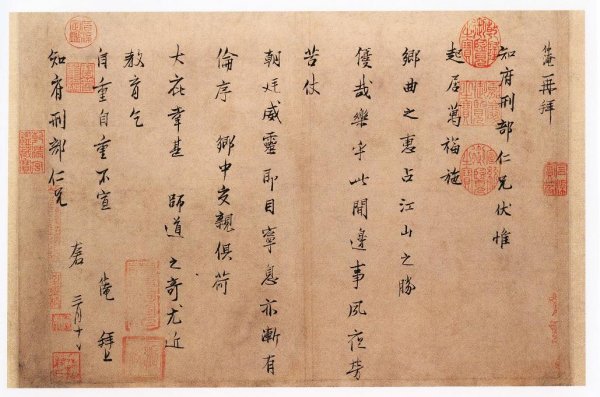 仲淹再拜
知府刑部仁兄伏惟
起居萬福施
鄉曲之惠占江山之勝
優哉樂乎此間邊事夙夜勞
苦仗
朝廷威靈即目寧息亦漸有
倫序鄉中交親俱荷
大庇幸甚師道之奇尤近
教育乞
自重自重不宣仲淹拜上
知府刑部仁兄左右
三月十日